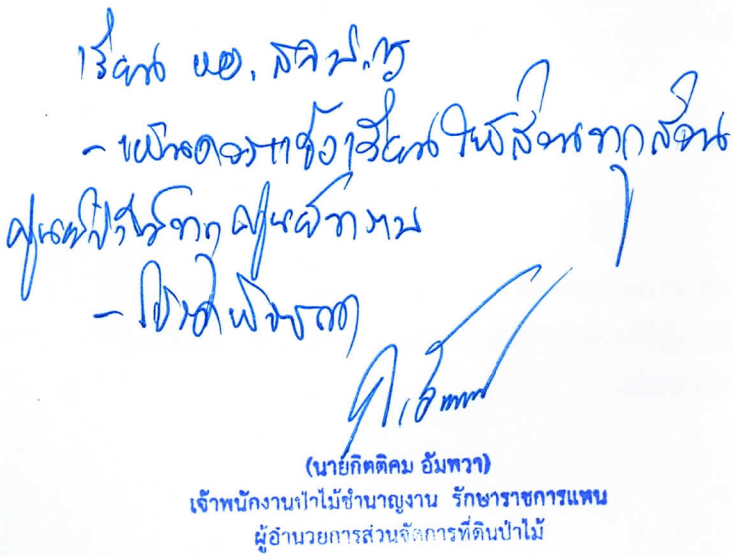 เรียน ผอ. สจป.ที่
- เห็นควรแจ้งเวียนให้ส่วนทุกส่วน
ศูนย์ป่าไม้ทุกศูนย์ทราบ
- โปรดพิจารณา
(นายกิตติคม อัมพวา)
เจ้าพนักงานป่าไม้ชำนาญงาน รักษาราชการแทน
ผู้อำนวยการส่วนจัดการที่ดินป่าไม้